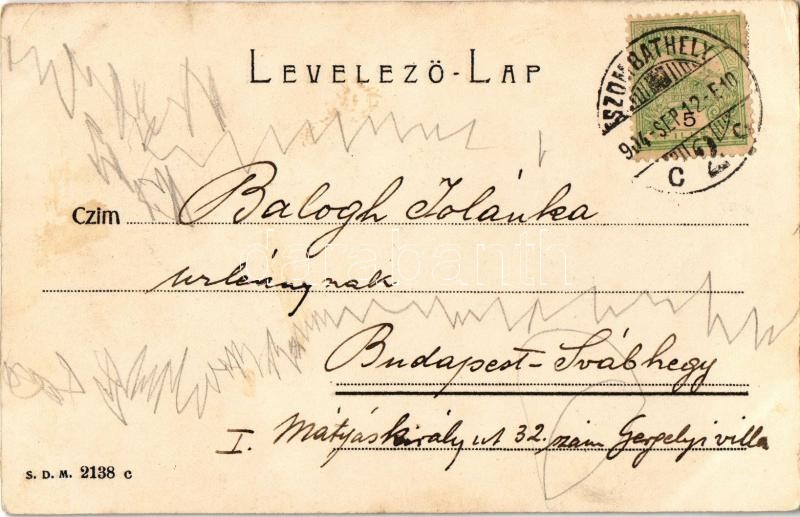 LEVELEZÖ-LAP
SZOMBATHELY
904-SEP.12-F.10
5
C
Czim Balogh Jolánka
urleánynak
Budapest-Svábhegy
I. Mátyáskirály ut 32. szám Gergelyi villa
S. D. M. 2138 C
darabanth